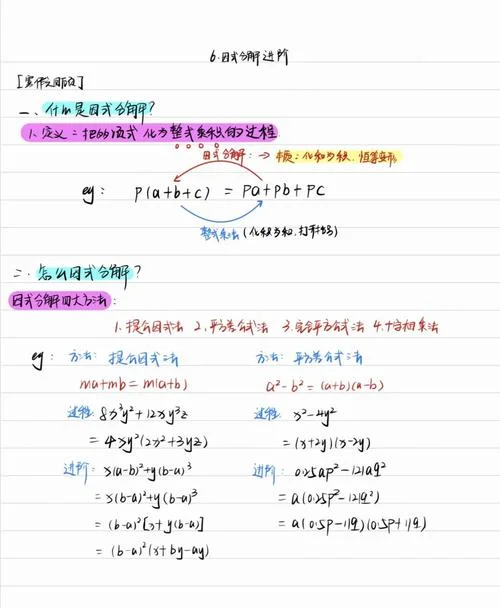 6.因式分解进阶
一、什么是因式分解?
1.定义:把多项式化为整式乘积的过程
因式分解:→本质:化和为积,恒等变形
eg: p(a+b+c) = pa+pb+pc
整式乘法(化积为和,打开括号)
二、怎么因式分解?
因式分解四大方法:
1.提公因式法 2.平方差公式法 3.完全平方公式法 4.十字相乘法
eg: 方法:提公因式法
ma+mb=m(a+b)
过程: 8x³y²+12xy³z
=4xy²(2x²+3yz)
进阶: x(a-b)²+y(b-a)³
=x(b-a)²+y(b-a)³
=(b-a)²[x+y(b-a)]
=(b-a)²(x+by-ay)
方法:平方差公式法
a²-b²=(a+b)(a-b)
过程: x²-4y²
=(x+2y)(x-2y)
进阶: 0.25ap²-121aq²
=a(0.25p²-121q²)
=a(0.5p-11q)(0.5p+11q)